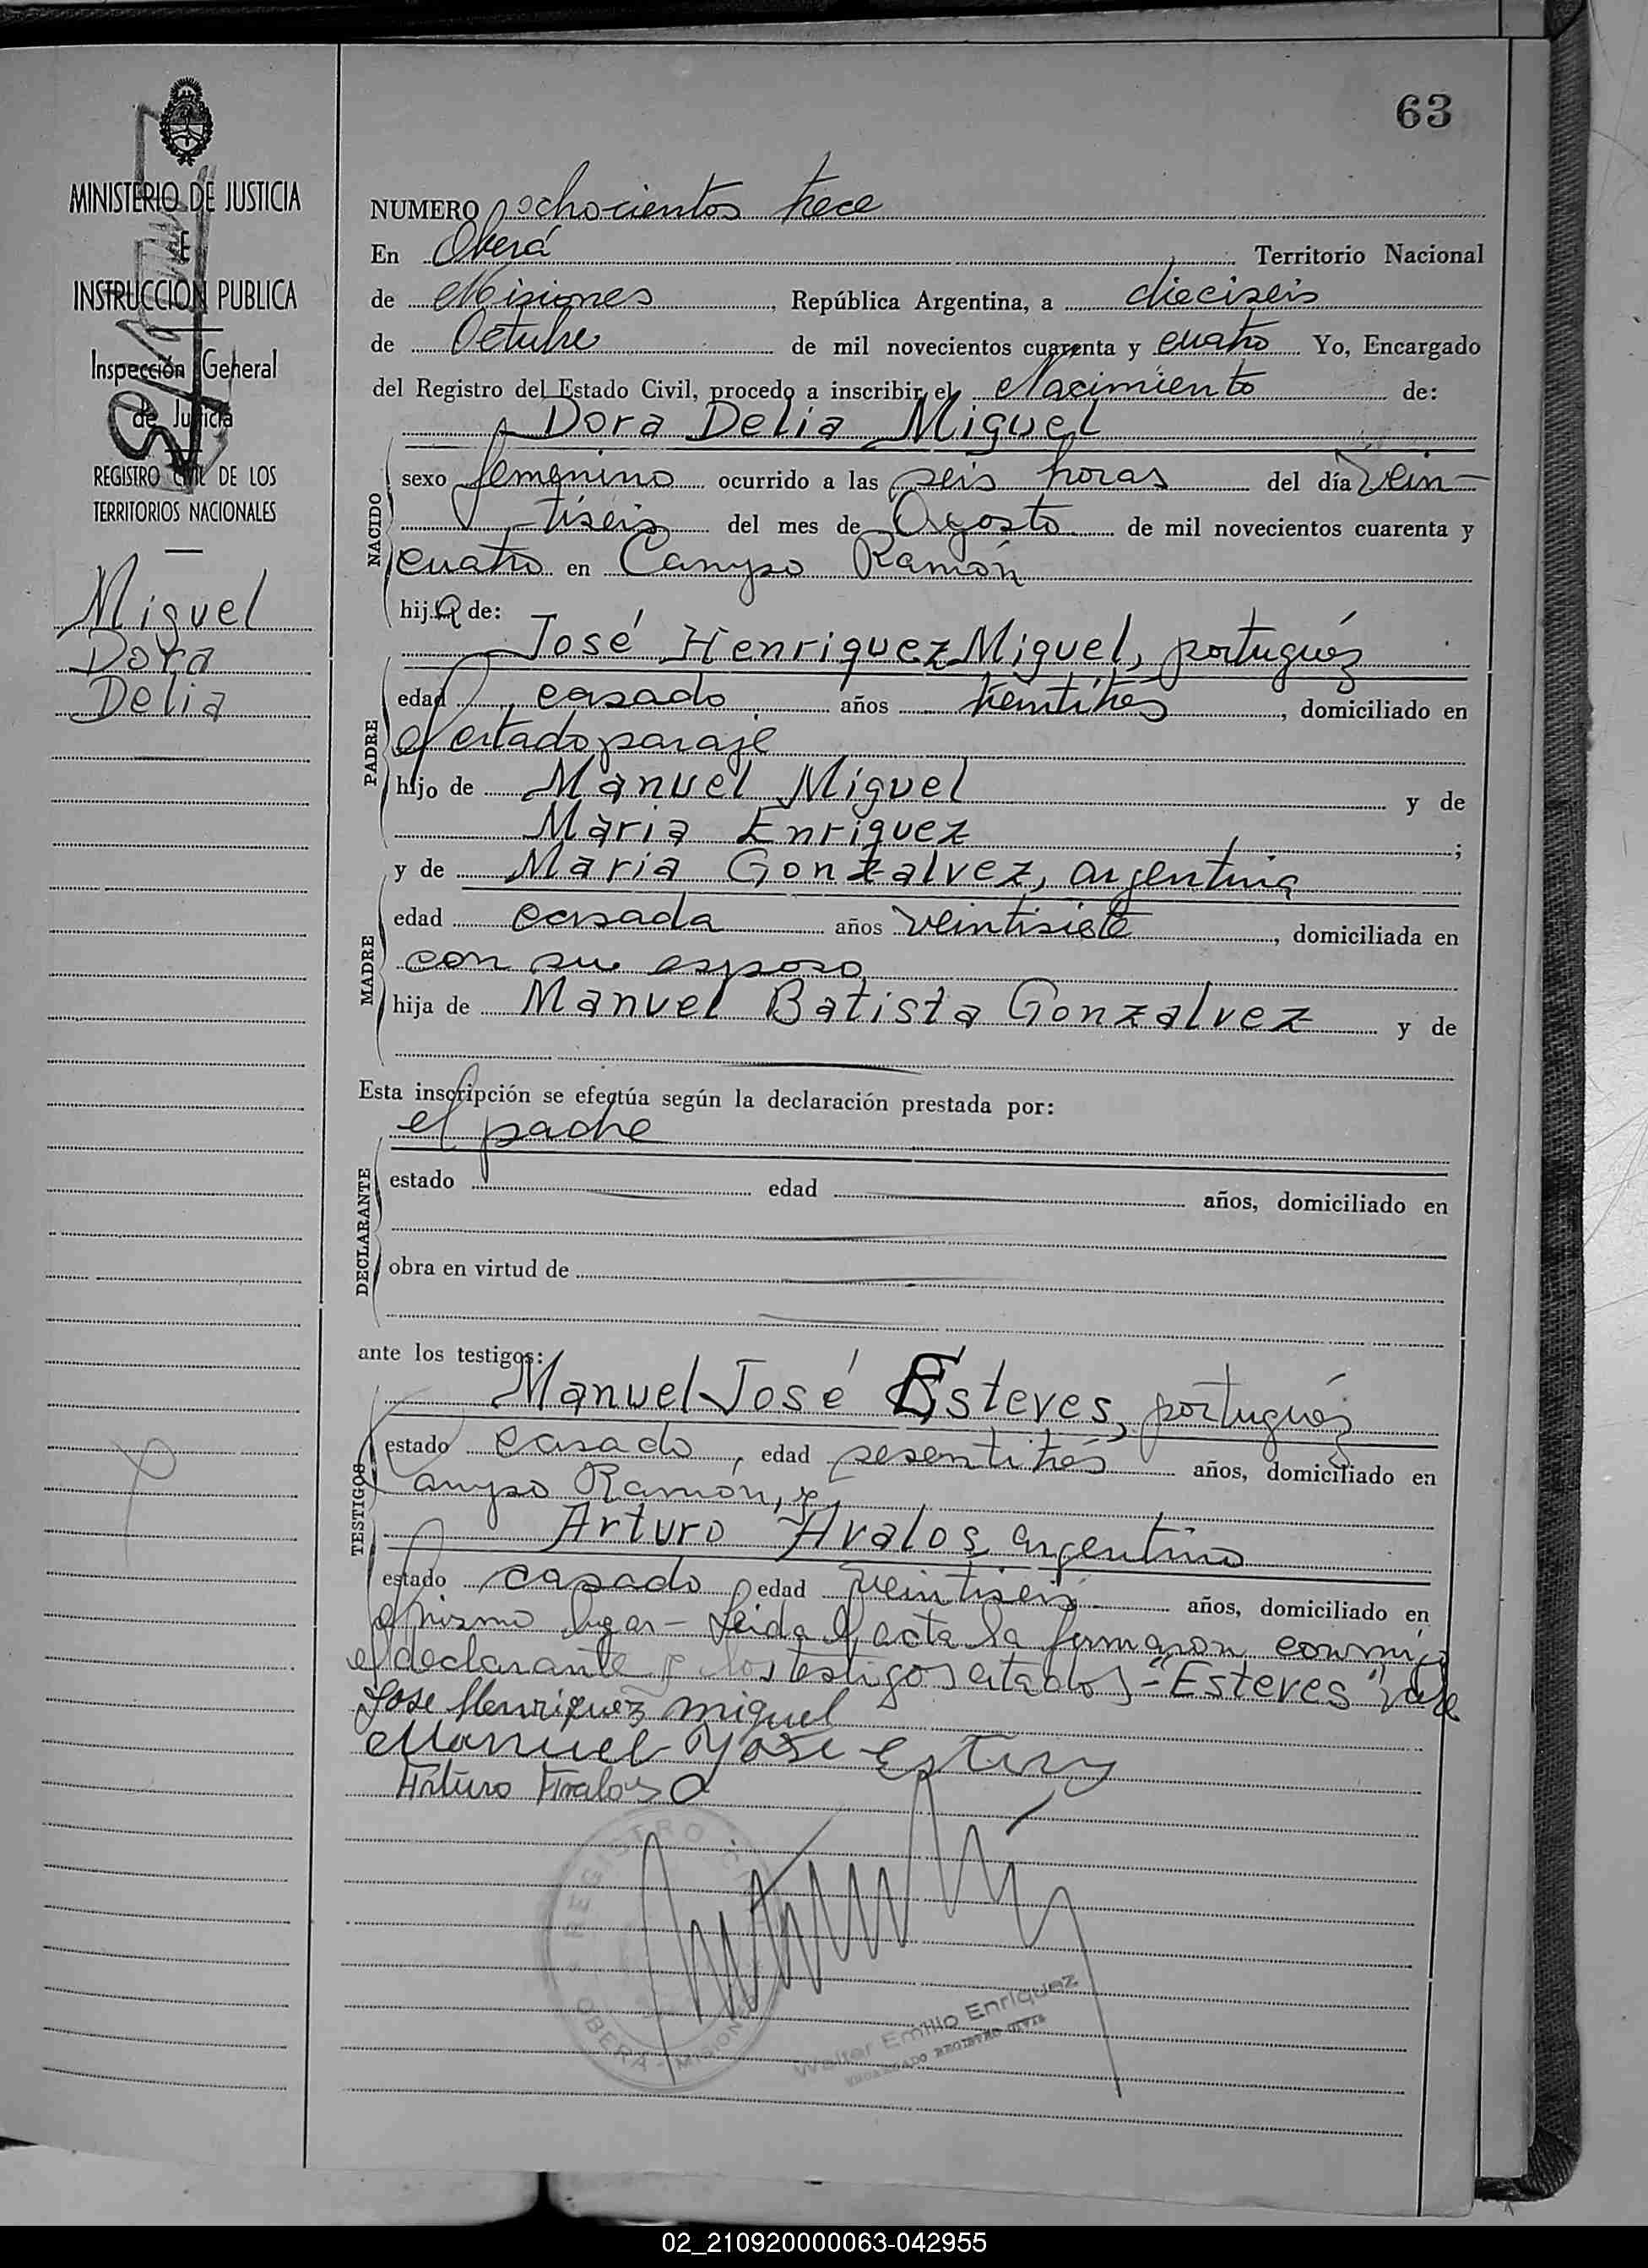 63
MINISTERIO DE JUSTICIA
E
INSTRUCCIÓN PUBLICA
Inspección General
de Justicia
REGISTRO CIVIL DE LOS
TERRITORIOS NACIONALES
Miguel
Dora
Delia
NUMERO ochocientos trece
En Oberá Territorio Nacional
de Misiones, República Argentina, a dieciseis
de Octubre de mil novecientos cuarenta y cuatro Yo, Encargado
del Registro del Estado Civil, procedo a inscribir el Nacimiento de:
Dora Delia Miguel
NACIDO
sexo femenino ocurrido a las seis horas del día vein-
tiseis del mes de Agosto de mil novecientos cuarenta y
cuatro en Campo Ramón
hija de:
José Henriquez Miguel, portugués
PADRE
edad casado años treintitrés, domiciliado en
el citado paraje
hijo de Manuel Miguel y de
Maria Enriquez;
y de Maria Gonzalvez, argentina
MADRE
edad casada años veintisiete, domiciliada en
con su esposo
hija de Manuel Batista Gonzalvez y de
Esta inscripción se efectúa según la declaración prestada por:
el padre
DECLARANTE
estado edad años, domiciliado en
obra en virtud de
ante los testigos:
Manuel José Esteves, portugués
TESTIGOS
estado casado, edad sesentitrés años, domiciliado en
Campo Ramón, y
Arturo Avalos, argentino
estado casado edad veintiseis años, domiciliado en
el mismo lugar - Leida el acta la firmaron conmigo
el declarante y los testigos citados - "Esteves" vale
Jose Henriquez miguel
Manuel Jose
Arturo Avalos
REGISTRO CIVIL
OBERA - MISIONES
Walter Emilio Enriquez
ENCARGADO REGISTRO CIVIL
02_210920000063-042955